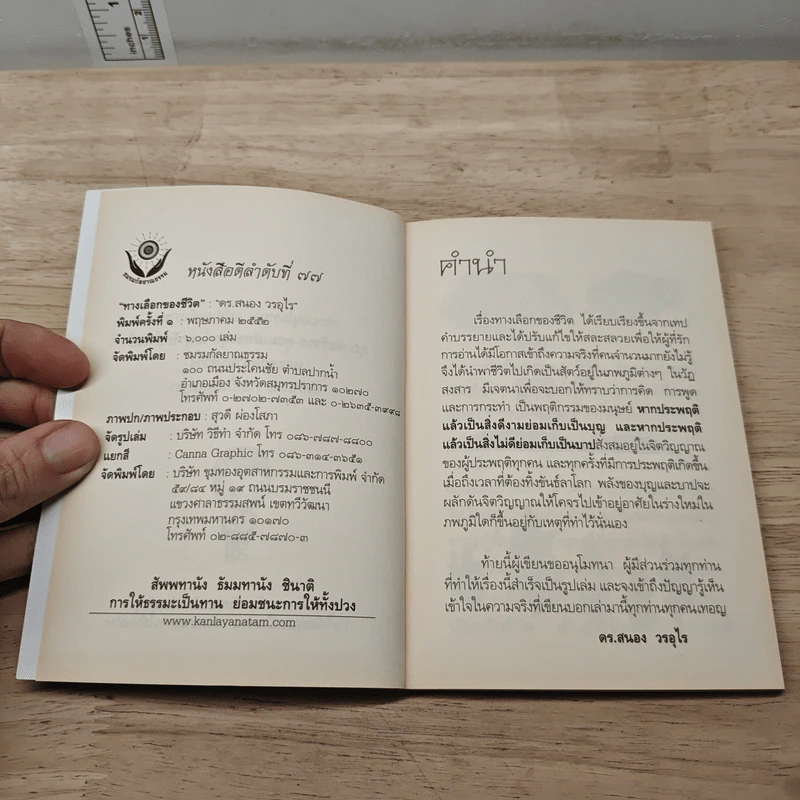 inches
1
2
ชมรมกัลยาณธรรม
หนังสือดีลำดับที่ ๗๗
"ทางเลือกของชีวิต" : "ดร.สนอง วรอุไร"
พิมพ์ครั้งที่ ๑ : พฤษภาคม ๒๕๕๒
จำนวนพิมพ์ : ๖,๐๐๐ เล่ม
จัดพิมพ์โดย : ชมรมกัลยาณธรรม
๑๐๐ ถนนประโคนชัย ตำบลปากน้ำ
อำเภอเมือง จังหวัดสมุทรปราการ ๑๐๒๗๐
โทรศัพท์ ๐-๒๗๐๒-๗๓๕๓ และ ๐-๒๖๓๕-๓๙๙๘
ภาพปก/ภาพประกอบ : สุวดี ผ่องโสภา
จัดรูปเล่ม : บริษัท วิธีทำ จำกัด โทร ๐๘๖-๗๘๗-๘๘๐๐
แยกสี : Canna Graphic โทร ๐๘๖-๓๑๔-๓๖๕๑
จัดพิมพ์โดย : บริษัท ขุมทองอุตสาหกรรมและการพิมพ์ จำกัด
๕๙/๘๔ หมู่ ๑๙ ถนนบรมราชชนนี
แขวงศาลาธรรมสพน์ เขตทวีวัฒนา
กรุงเทพมหานคร ๑๐๑๗๐
โทรศัพท์ ๐๒-๘๘๕-๗๘๗๐-๓
สัพพทานัง ธัมมทานัง ชินาติ
การให้ธรรมะเป็นทาน ย่อมชนะการให้ทั้งปวง
www.kanlayanatam.com
คำนำ
เรื่องทางเลือกของชีวิต ได้เรียบเรียงขึ้นจากเทป
คำบรรยายและได้ปรับแก้ไขให้สละสลวยเพื่อให้ผู้ที่รัก
การอ่านได้มีโอกาสเข้าถึงความจริงที่คนจำนวนมากยังไม่รู้
จึงได้นำพาชีวิตไปเกิดเป็นสัตว์อยู่ในภพภูมิต่างๆ ในวัฏ
สงสาร มีเจตนาเพื่อจะบอกให้ทราบว่าการคิด การพูด
และการกระทำ เป็นพฤติกรรมของมนุษย์ หากประพฤติ
แล้วเป็นสิ่งดีงามย่อมเก็บเป็นบุญ และหากประพฤติ
แล้วเป็นสิ่งไม่ดีย่อมเก็บเป็นบาปสั่งสมอยู่ในจิตวิญญาณ
ของผู้ประพฤติทุกคน และทุกครั้งที่มีการประพฤติเกิดขึ้น
เมื่อถึงเวลาที่ต้องทิ้งขันธ์ลาโลก พลังของบุญและบาปจะ
ผลักดันจิตวิญญาณให้โคจรไปเข้าอยู่อาศัยในร่างใหม่ใน
ภพภูมิใดก็ขึ้นอยู่กับเหตุที่ทำไว้นั่นเอง
ท้ายนี้ผู้เขียนขออนุโมทนา ผู้มีส่วนร่วมทุกท่าน
ที่ทำให้เรื่องนี้สำเร็จเป็นรูปเล่ม และจงเข้าถึงปัญญารู้เห็น
เข้าใจในความจริงที่เขียนบอกเล่ามานี้ทุกท่านทุกคนเทอญ
ดร.สนอง วรอุไร